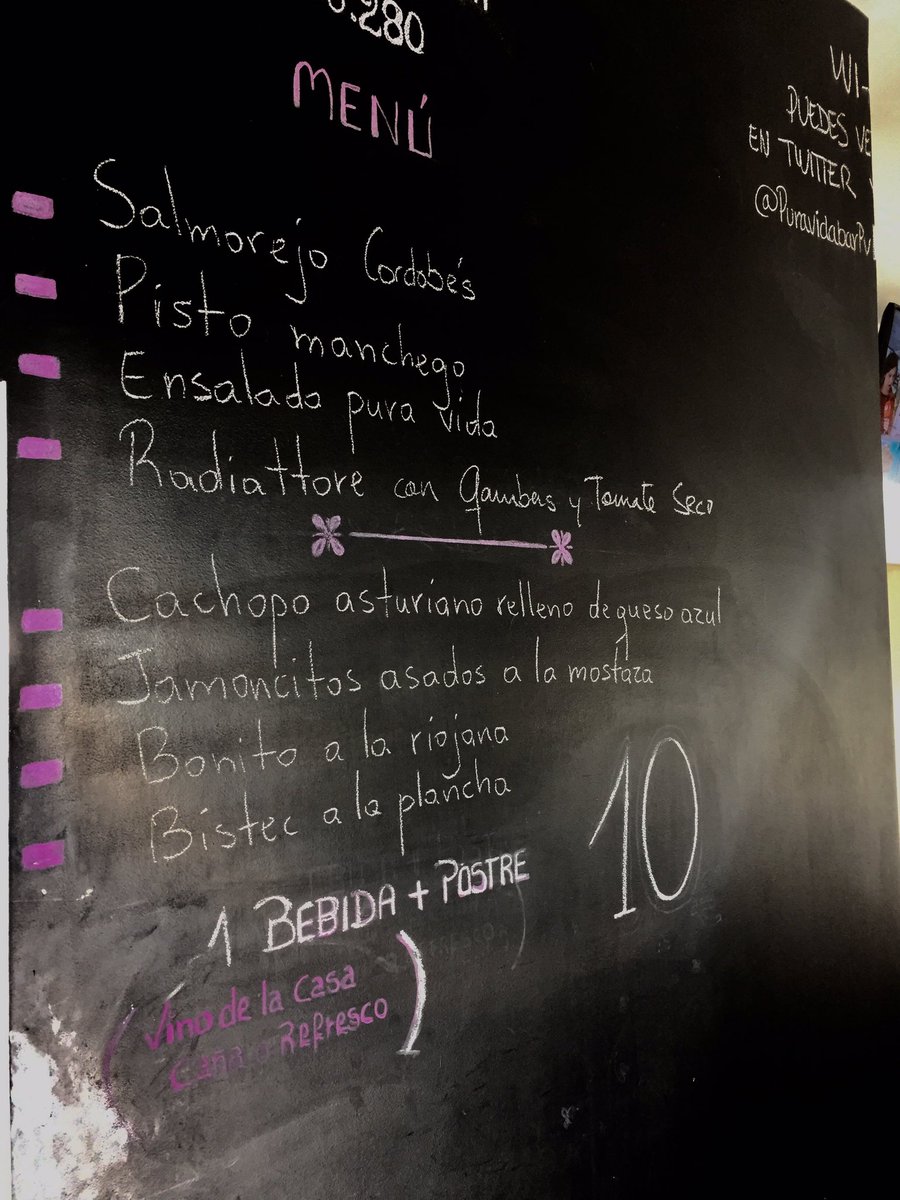 .280
MENÚ
Salmorejo Cordobés
Pisto manchego
Ensalada pura vida
Radiattore con gambas y Tomate Seco
Cachopo asturiano relleno de queso azul
Jamoncitos asados a la mostaza
Bonito a la riojana
Bistec a la plancha
10
1 BEBIDA + POSTRE
(Vino de la casa
Caña o Refresco)
WI-
PUEDES VE
EN TWITTER
@PuravidabarPu